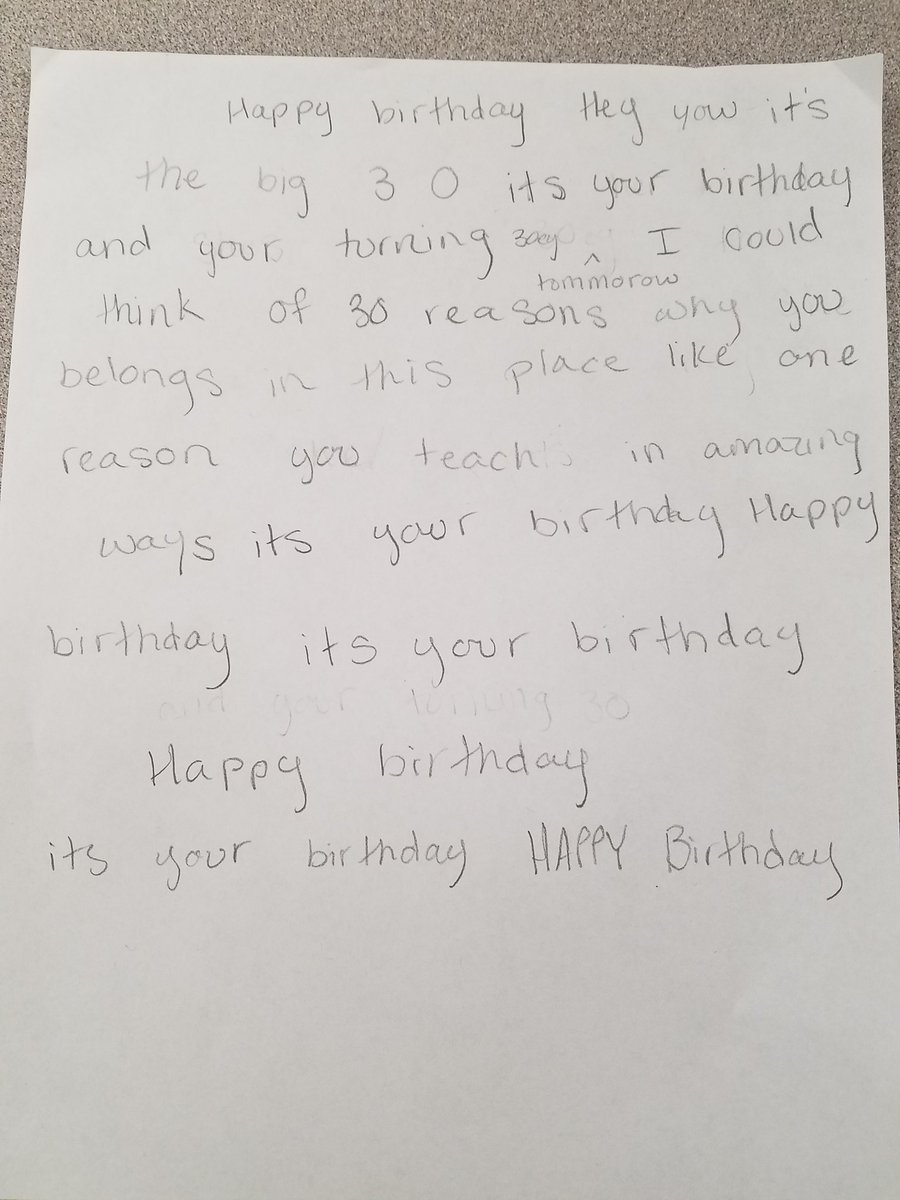 Happy birthday Hey yow it's
the big 3 0 its your birthday
and your turning ^ I could
tommorow
think of 30 reasons why you
belongs in this place like, one
reason you teach in amazing
ways its your birthday Happy
birthday its your birthday
and your turning 30
Happy birthday
its your birthday HAPPY Birthday